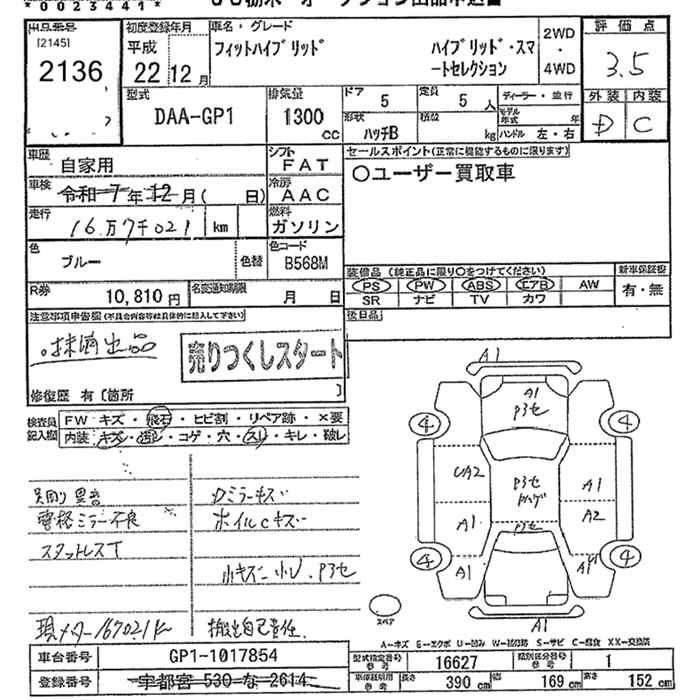 *0023441*
出品番号
[2145]
2136
初度登録年月
平成
22 12月
車名・グレード
フィットハイブリッド ハイブリッド・スマ
ートセレクション
2WD
・
4WD
評価点
3.5
外装 内装
D C
型式
DAA-GP1
排気量
1300
CC
ドア
5
定員
5人
ディーラー・並行
モデル
年式 年
形状
ハッチB
積載
kg
ハンドル 左・右
車歴
自家用
シフト
FAT
セールスポイント(正常に機能するものに限ります)
○ユーザー買取車
車検
令和 7年 12月( 日)
冷房
AAC
走行
16万7千021 km
燃料
ガソリン
色
ブルー
色替
色コード
B568M
装備品(純正品に限り○をつけてください)
PS PW ABS エアB AW
SR ナビ TV カワ
新車保証書
有・無
R券
10,810円
名変通知期限
月 日
後日品
注意事項申告欄(不具合内容等は具体的に記入して下さい)
抹消出品
売りつくしスタート
修復歴 有〔箇所 〕
検査員
記入欄
FW キズ・飛石・ヒビ割・リペア跡・×要
内装・キズ・汚レ・コゲ・穴・スレ・キレ・破レ
A1
A1
P3セ
4 4
UA2
P3セ
Pハゲ
A1
A1
A2
P3セ
A1
A1
4 4
A1
スペア
異音
電格ミラー不良
スタットレスT
現メーター167021K
ミラーキズ
ホイルCキズ
小キズ 小U. P3セ
搬出自己責任.
A-キズ E-エクボ U-凹み W-補修跡 S-サビ C-腐食 XX-交換済
車台番号 GP1-1017854
型式指定番号
参考
16627
類別区分番号
参考
1
登録番号 宇都宮 530 な 2614
車体寸法
参考
長さ 390 cm 幅 169 cm 高さ 152 cm